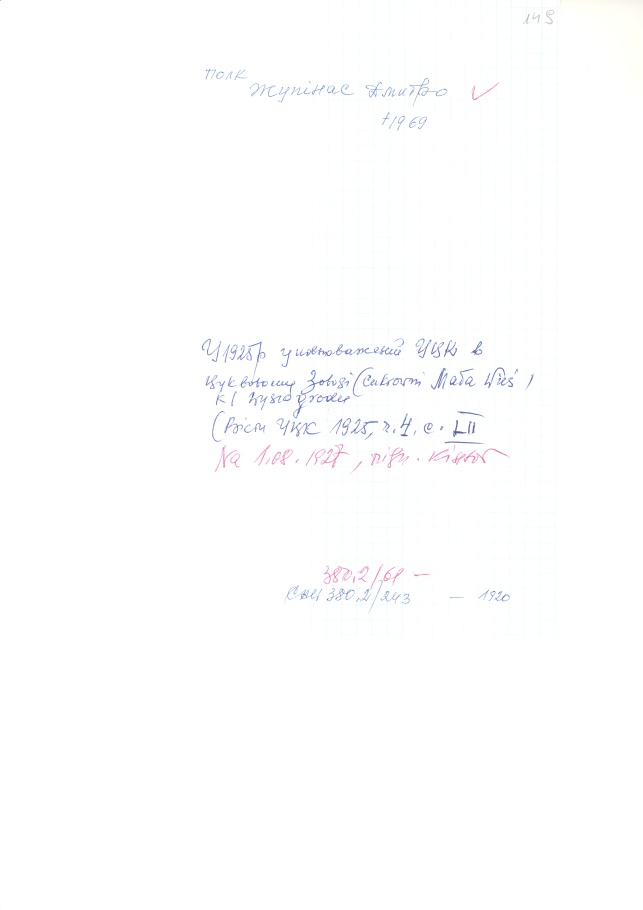 149
полк
Жупінас Дмитро ✓
+1969
У 1925р уповноважений УЦК в
цукровому заводі (Cukrovni Mała Wieś)
к/
(Вісти УЦК 1925, ч. 4. с. LII
Na 1.08.1927, підп.
380,2/61 —
САМ 380,2/243 — 1920